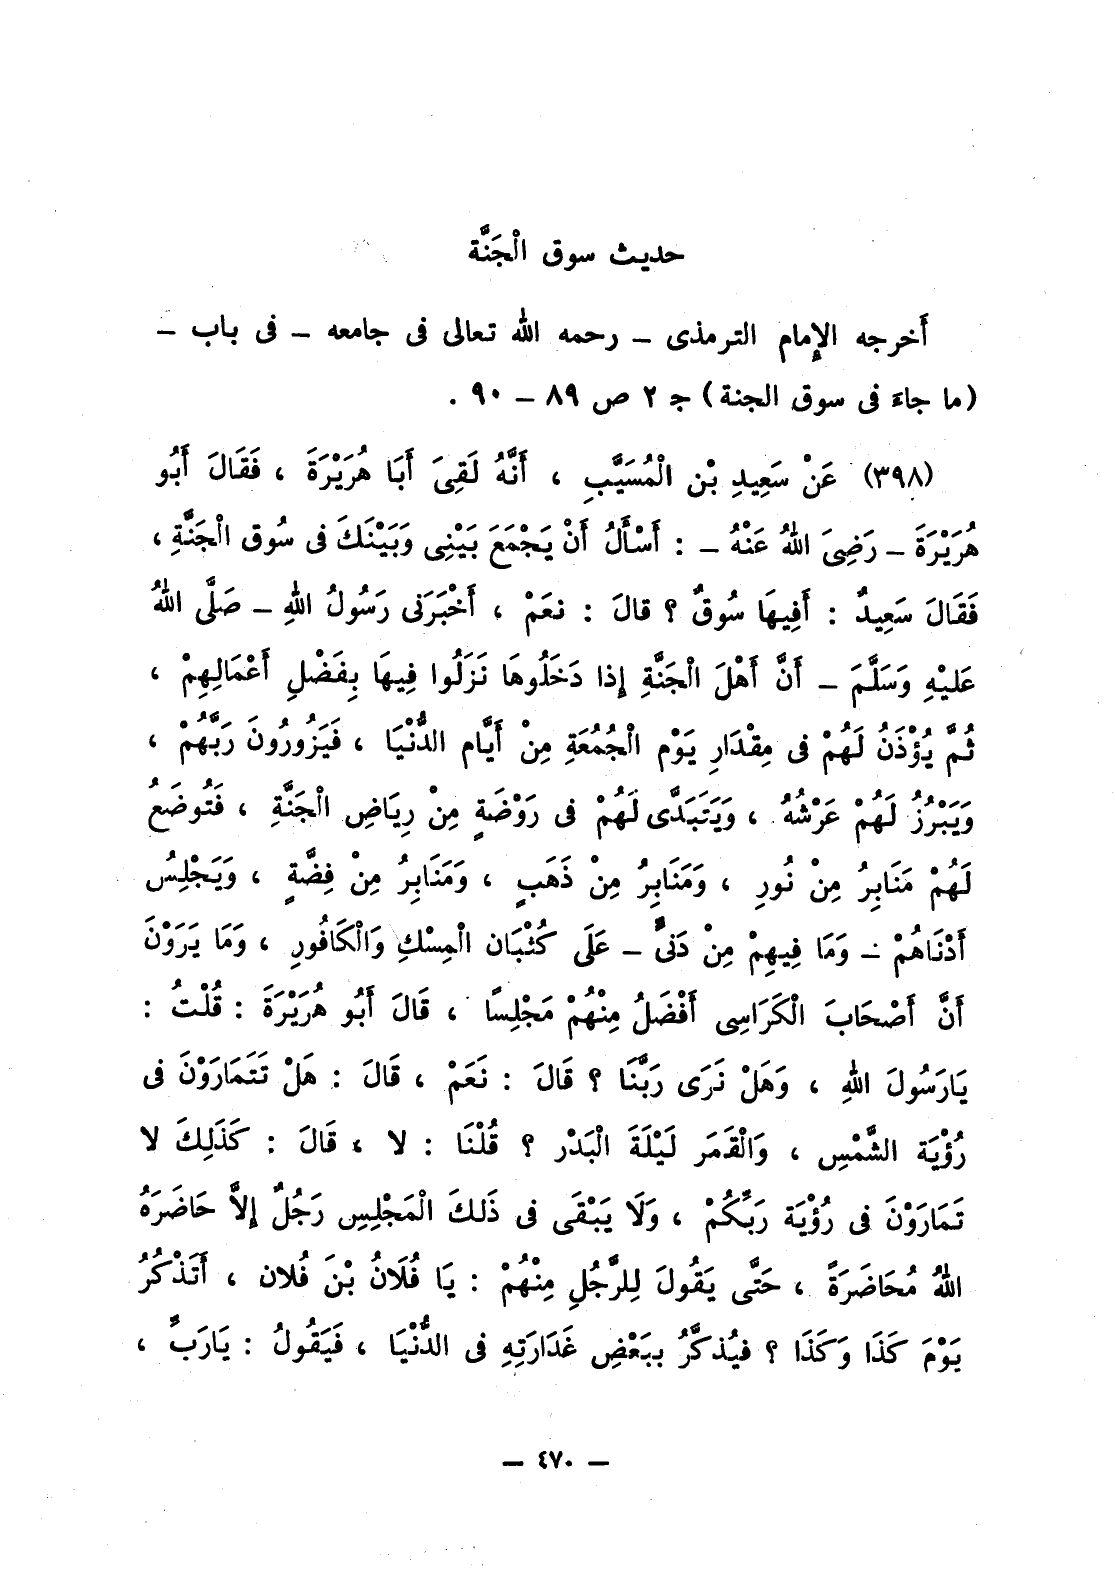 حديث سوق الْجَنَّة
أَخرجه الإِمام الترمذى – رحمه الله تعالى فى جامعه – فى باب –
(ما جاءَ فى سوق الجنة) جـ ٢ ص ٨٩ – ٩٠ .
(٣٩٨) عَنْ سَعِيدِ بْن الْمُسَيَّبِ ، أَنَّهُ لَقِىَ أَبَا هُرَيْرَةَ ، فَقَالَ أَبُو
هُرَيْرَةَ – رَضِىَ اللهُ عَنْهُ – : أَسْأَلُ أَنْ يَجْمَعَ بَيْنِى وَبَيْنَكَ فى سُوق الْجَنَّةِ ،
فَقَالَ سَعِيدٌ : أَفِيهَا سُوقٌ ؟ قالَ : نعَمْ ، أَخْبَرَنى رَسُولُ اللهِ – صَلَّى اللهُ
عَليْهِ وَسَلَّمَ – أَنَّ أَهْلَ الْجَنَّةِ إِذا دَخَلُوهَا نَزَلُوا فِيهَا بِفَضْلِ أَعْمَالِهِمْ ،
ثُمَّ يُؤْذَنُ لَهُمْ فى مِقْدَارِ يَوْم الْجُمُعَةِ مِنْ أَيَّام الدُّنْيَا ، فَيَزُورُونَ رَبَّهُمْ ،
وَيَبْرُزُ لَهُمْ عَرْشُهُ ، وَيَتَبَدَّى لَهُمْ فى رَوْضَةٍ مِنْ رِيَاضِ الْجَنَّةِ ، فَتُوضَعُ
لَهُمْ مَنَابِرُ مِنْ نُورٍ ، وَمَنَابِرُ مِنْ ذَهَبٍ ، وَمَنَابِرُ مِنْ فِضَّةٍ ، وَيَجْلِسُ
أَدْنَاهُمْ – وَمَا فِيهِمْ مِنْ دَنىٍّ – عَلَى كُثْبَان الْمِسْكِ وَالْكَافُورِ ، وَمَا يَرَوْنَ
أَنَّ أَصْحَابَ الْكَرَاسِى أَفْضَلُ مِنْهُمْ مَجْلِسًا ، قَالَ أَبُو هُرَيْرَةَ : قُلْتُ :
يَارَسُولَ اللهِ ، وَهَلْ نَرَى رَبَّنَا ؟ قَالَ : نَعَمْ ، قَالَ : هَلْ تَتَمَارَوْنَ فى
رُؤْيَة الشَّمْسِ ، وَالْقَمَر لَيْلَةَ الْبَدْر ؟ قُلْنَا : لا ، قَالَ : كَذَلِكَ لا
تَمَارَوْنَ فى رُؤْيَة رَبِّكُمْ ، وَلَا يَبْقَى فى ذَلكَ الْمَجْلِسِ رَجُلٌ إِلاَّ حَاضَرَهُ
اللهُ مُحَاضَرَةً ، حَتَّى يَقُولَ لِلرَّجُلِ مِنْهُمْ : يَا فُلَانُ بْنَ فُلان ، أَتَذْكُرُ
يَوْمَ كَذَا وَكَذَا ؟ فيُذكَّرُ ببَعْضِ غَدَارَتِهِ فى الدُّنْيَا ، فَيَقُولُ : يَارَبِّ ،
– ٤٧٠ –